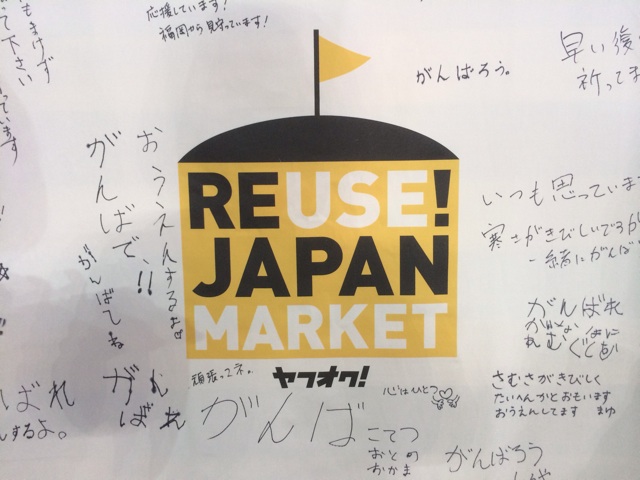 応援しています!
福岡から見守っています!
がんばろう。
早い復
祈ってま
もまけず
って下さい
ています
がんばで、!!
おうえんするよ
がんばてね
REUSE!
JAPAN
MARKET
ヤフオク!
いつも思っていま
寒さがきびしいですが
一緒にがんば
がんばれ
さむさがきびしく
たいへんかとおもいます
おうえんしてます まゆ
ばれ
するよ。
がんばれ
頑張ってネ。
心はひとつ
がんば
こてつ
おとめ
おかま
がんばろう